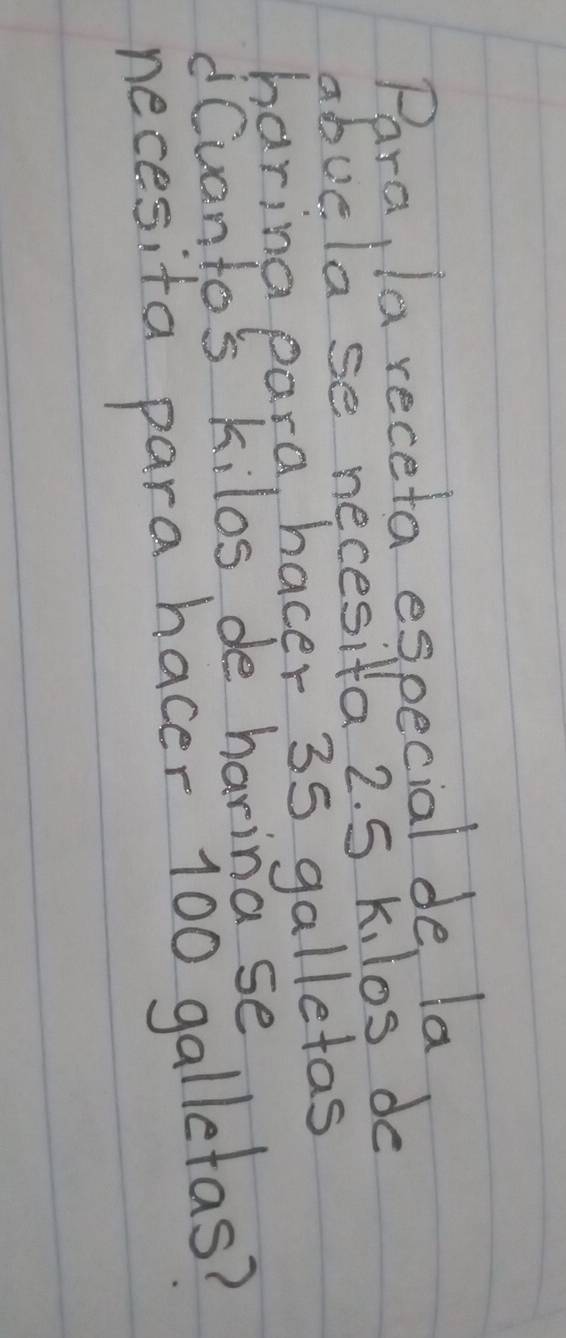 Para la receta especial de la
abuela se necesita 2.5 kilos de
harina para hacer 35 galletas
¿Cuantos kilos de harina se
necesita para hacer 100 galletas?